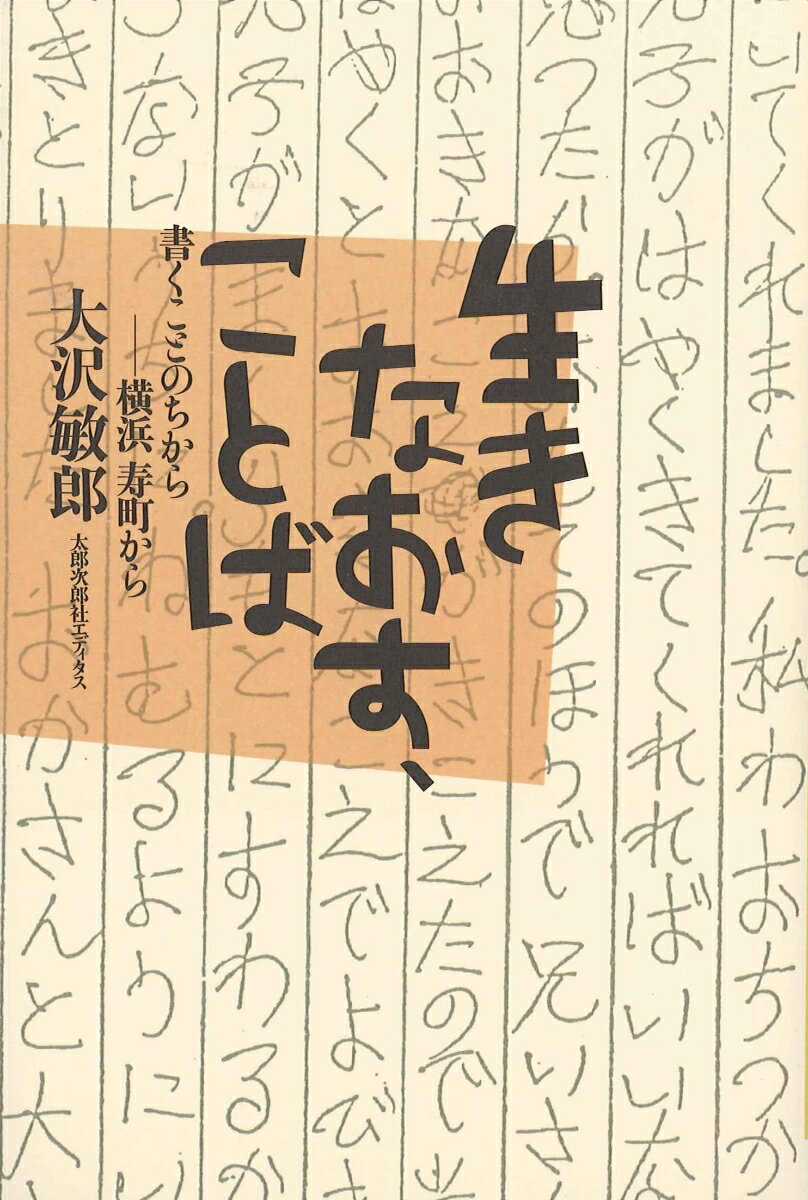 いてくれました。私わおちつか
子がはやくきてくれればいいな
てのほうで兄いさ
こえたので
はやくと
こえでよび
子がまくらもとにすわるか
ない
ねむるように
きとりました
おかさんと大
生き
なおす、
ことば
書くことのちから
──横浜 寿町から
大沢敏郎
太郎次郎社エディタス